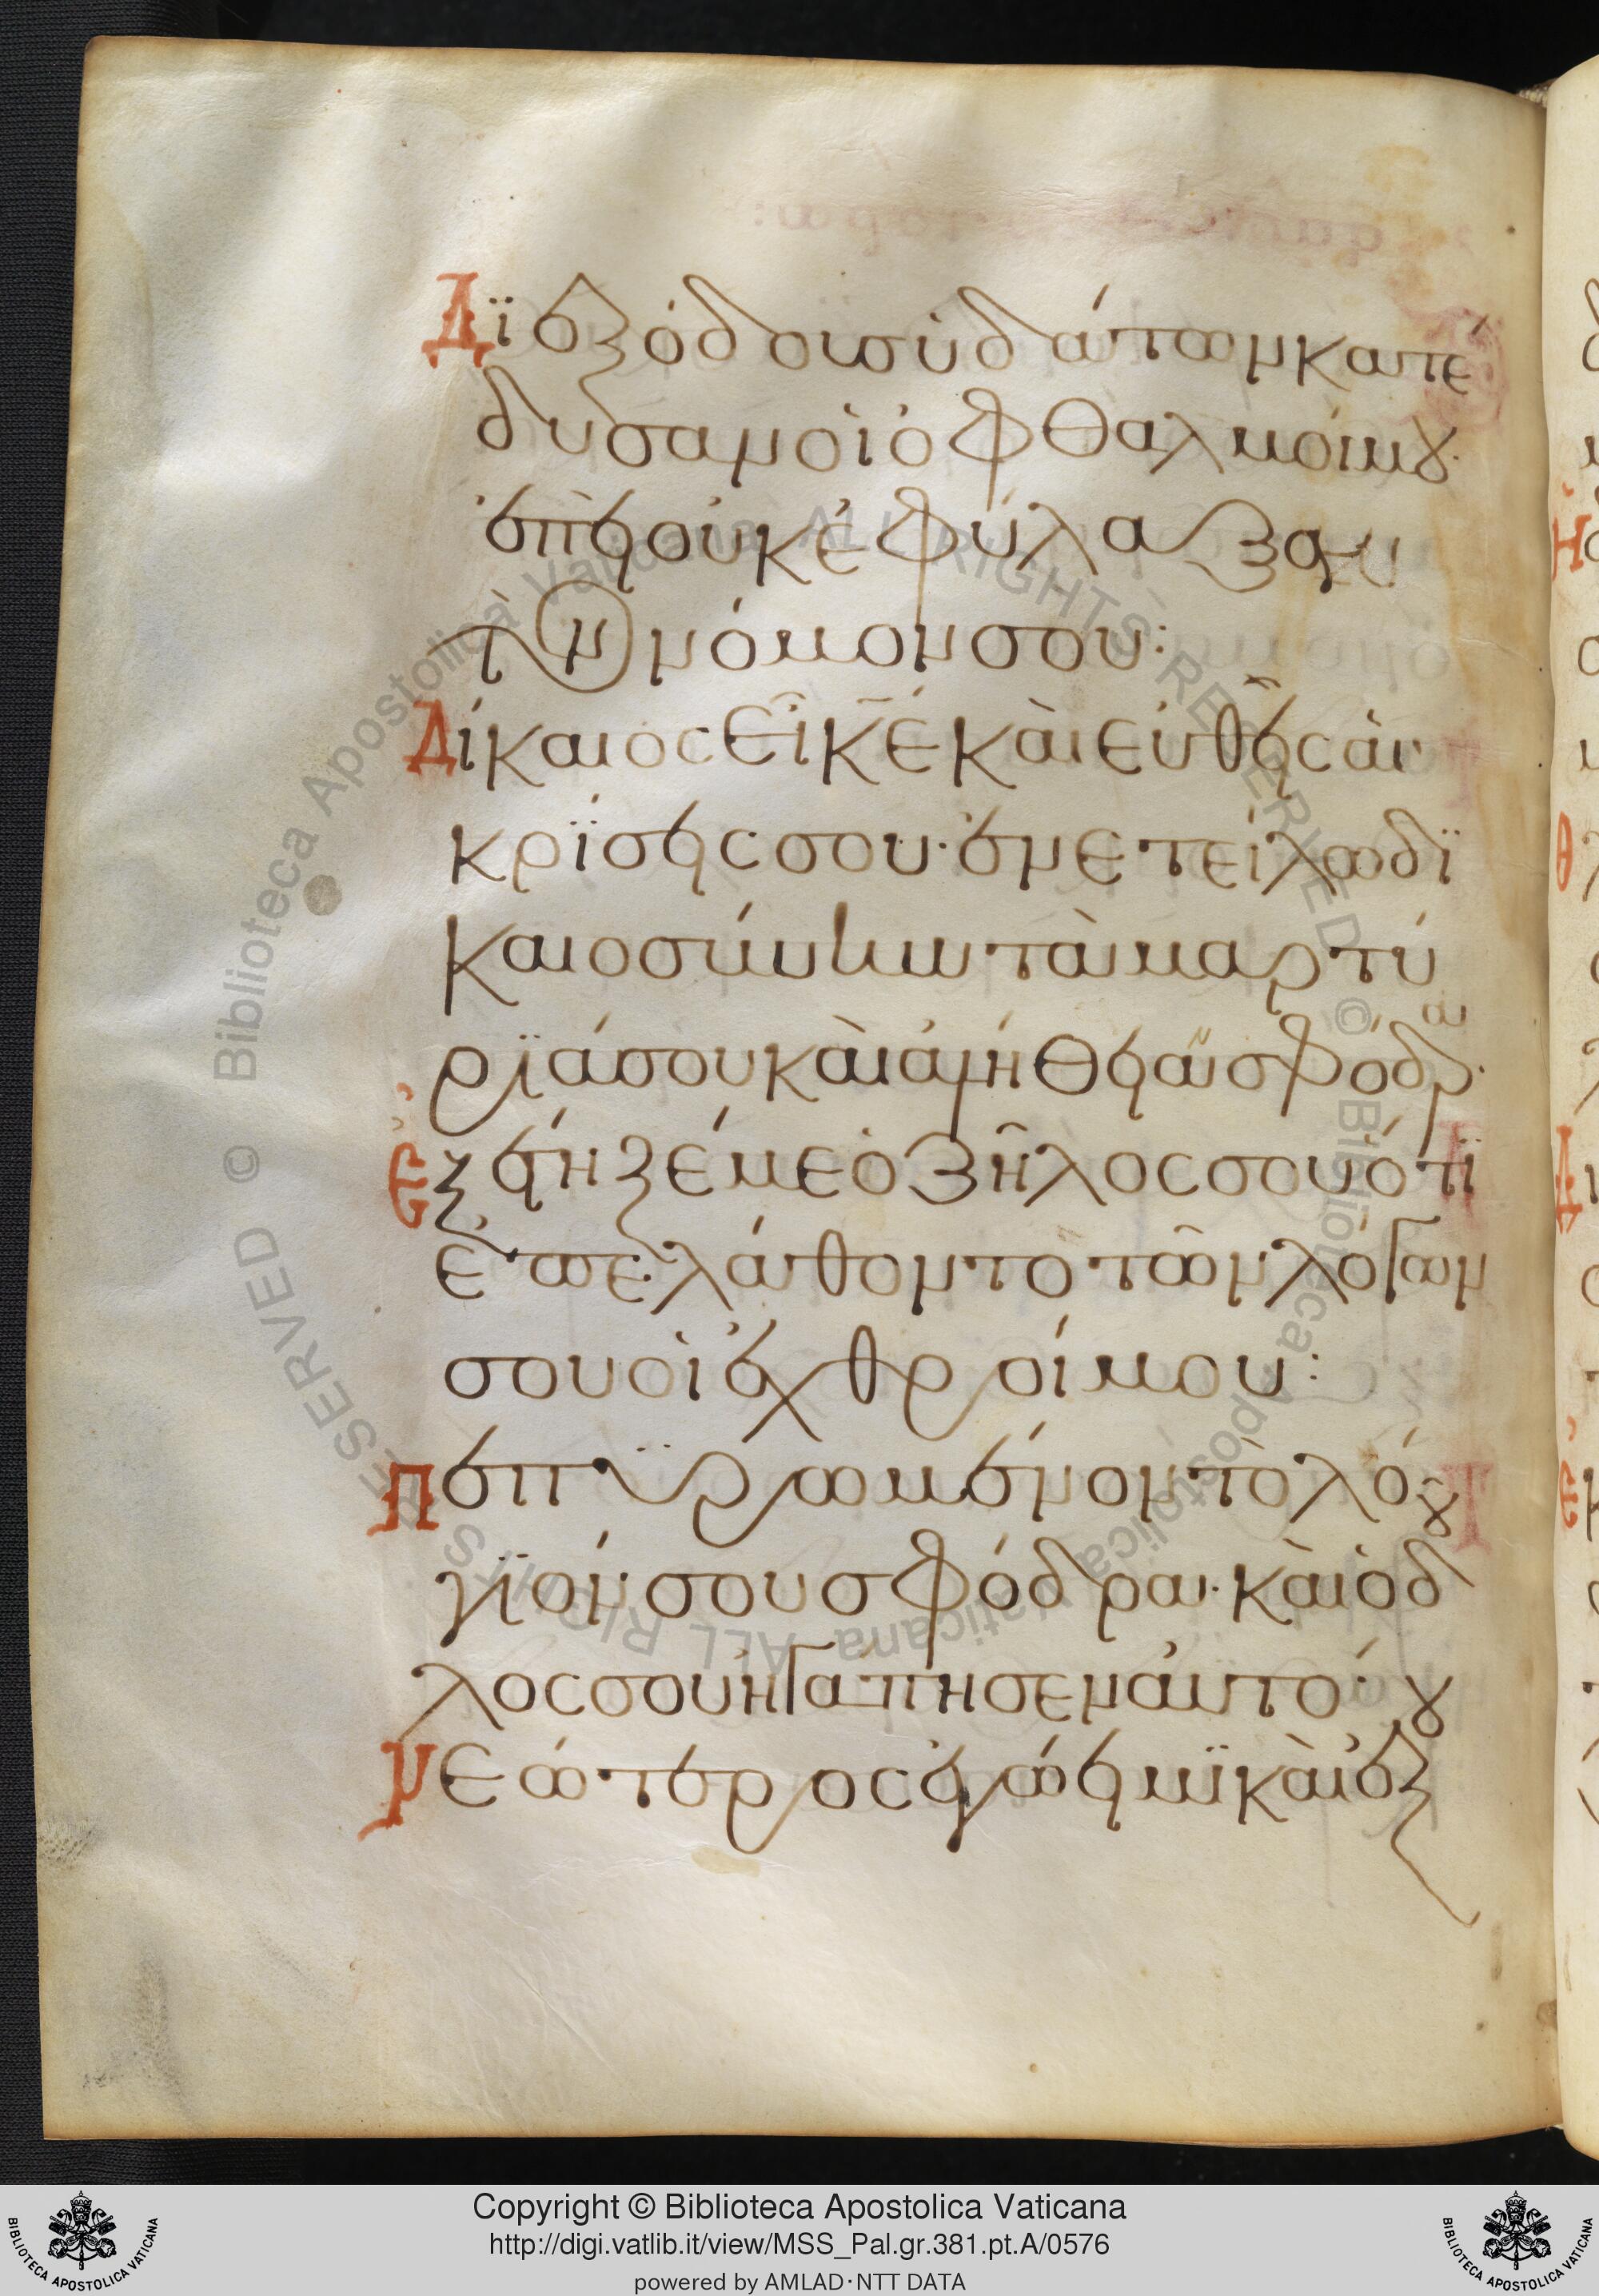 Διεξόδους ὑδάτων κατέ
δυσαν οἱ ὀφθαλμοί μου·
ἐπεὶ οὐκ ἐφύλαξαν
τὸν νόμον σου:
Δίκαιος εἶ κ̅ε̅ καὶ εὐθεῖς αἱ
κρίσεις σου· ἐνετείλω δι
καιοσύνην τὰ μαρτύ
ριά σου καὶ ἀλήθειαν σφόδρα·
Ἐξέτηξέ με ὁ ζῆλος σου ὅτι
ἐπελάθοντο τῶν λόγων
σου οἱ ἐχθροί μου:
Πεπυρωμένον τὸ λό
γιόν σου σφόδρα· καὶ ὁ δοῦ
λος σου ἠγάπησεν αὐτό·
Νεώτερος ἐγώ εἰμι καὶ ἐξ
Copyright © Biblioteca Apostolica Vaticana
http://digi.vatlib.it/view/MSS_Pal.gr.381.pt.A/0576
powered by AMLAD·NTT DATA
BIBLIOTECA APOSTOLICA VATICANA
BIBLIOTECA APOSTOLICA VATICANA